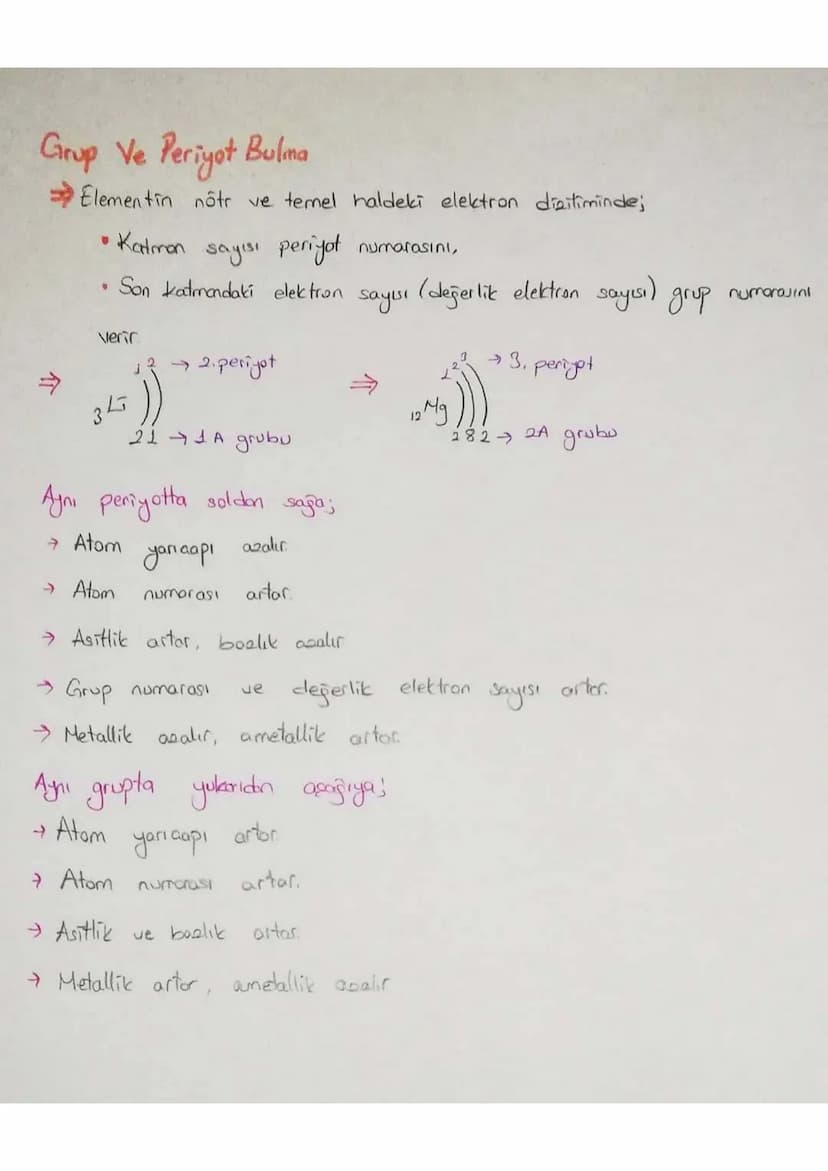 Grup Ve Periyot Bulma
⇒ Elementin nötr ve temel haldeki elektron diziliminde;
• Katman sayısı periyot numarasını,
• Son katmandaki elektron sayısı (değerlik elektron sayısı) grup numarasını
verir
1 2 → 2. periyot
⇒ 3Li ))
2 1 → 1A grubu
1 2 3 → 3. periyot
⇒ 12Mg )))
2 8 2 → 2A grubu
Aynı periyotta soldan sağa;
→ Atom yarıçapı azalır.
→ Atom numarası artar.
→ Asitlik artar, bazlık azalır
→ Grup numarası ve değerlik elektron sayısı artar.
→ Metallik azalır, ametallik artar.
Aynı grupta yukarıdan aşağıya;
→ Atom yarıçapı artar
→ Atom numarası artar.
→ Asitlik ve bazlık artar.
→ Metallik artar, ametallik azalır